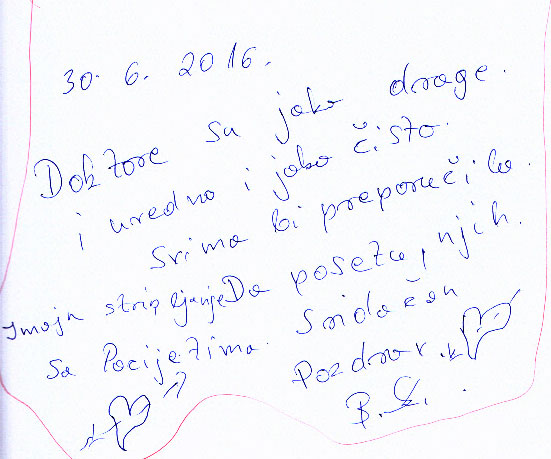 30. 6. 2016.
Doktore su jako drage.
i uredno i jako čisto.
Svima bi preporučila.
Da poseta, njih.
Imaju stripljenje
sa Pocijetima.
Pozdrav.
B. S.